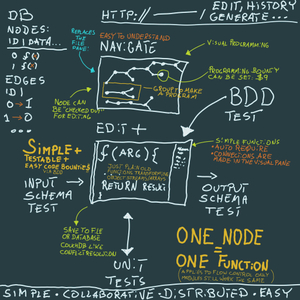 DB
HTTP://
EDIT, HISTORY
GENERATE...
NODES:
ID | DATA...
0 f()
1 f()
EDGES
ID |
0 → 1
1 → 0
...
REPLACES
THE
FILE
PANE
EASY TO UNDERSTAND
NAVIGATE
VISUAL PROGRAMMING
PROGRAMMING BOUNTY
CAN BE SET: $?
GROUP TO MAKE
A PROGRAM
NODE CAN
BE "CHECKED OUT"
FOR EDITING
BDD
TEST
EDIT +
SIMPLE+
TESTABLE +
EASY CODE BOUNTIES
VIA BDD
f(ARG) {
JUST PLAIN OLD
FUNCTIONS TRANSFORMING
OBJECT STREAMS/ARRAYS
RETURN RESULT
SIMPLE FUNCTIONS
• AUTO REQUIRE
• CONNECTIONS ARE
MADE IN THE VISUAL PANE
INPUT
SCHEMA
TEST
OUTPUT
SCHEMA
TEST
SAVE TO FILE
OR DATABASE
COUCHDB LIKE
CONFLICT RESOLUTION
UNIT
TESTS
ONE NODE
=
ONE FUNCTION
(APPLIES TO FLOW CONTROL ONLY
MODULES STILL WORK THE SAME)
SIMPLE • COLLABORATIVE • DISTRIBUTED • EASY